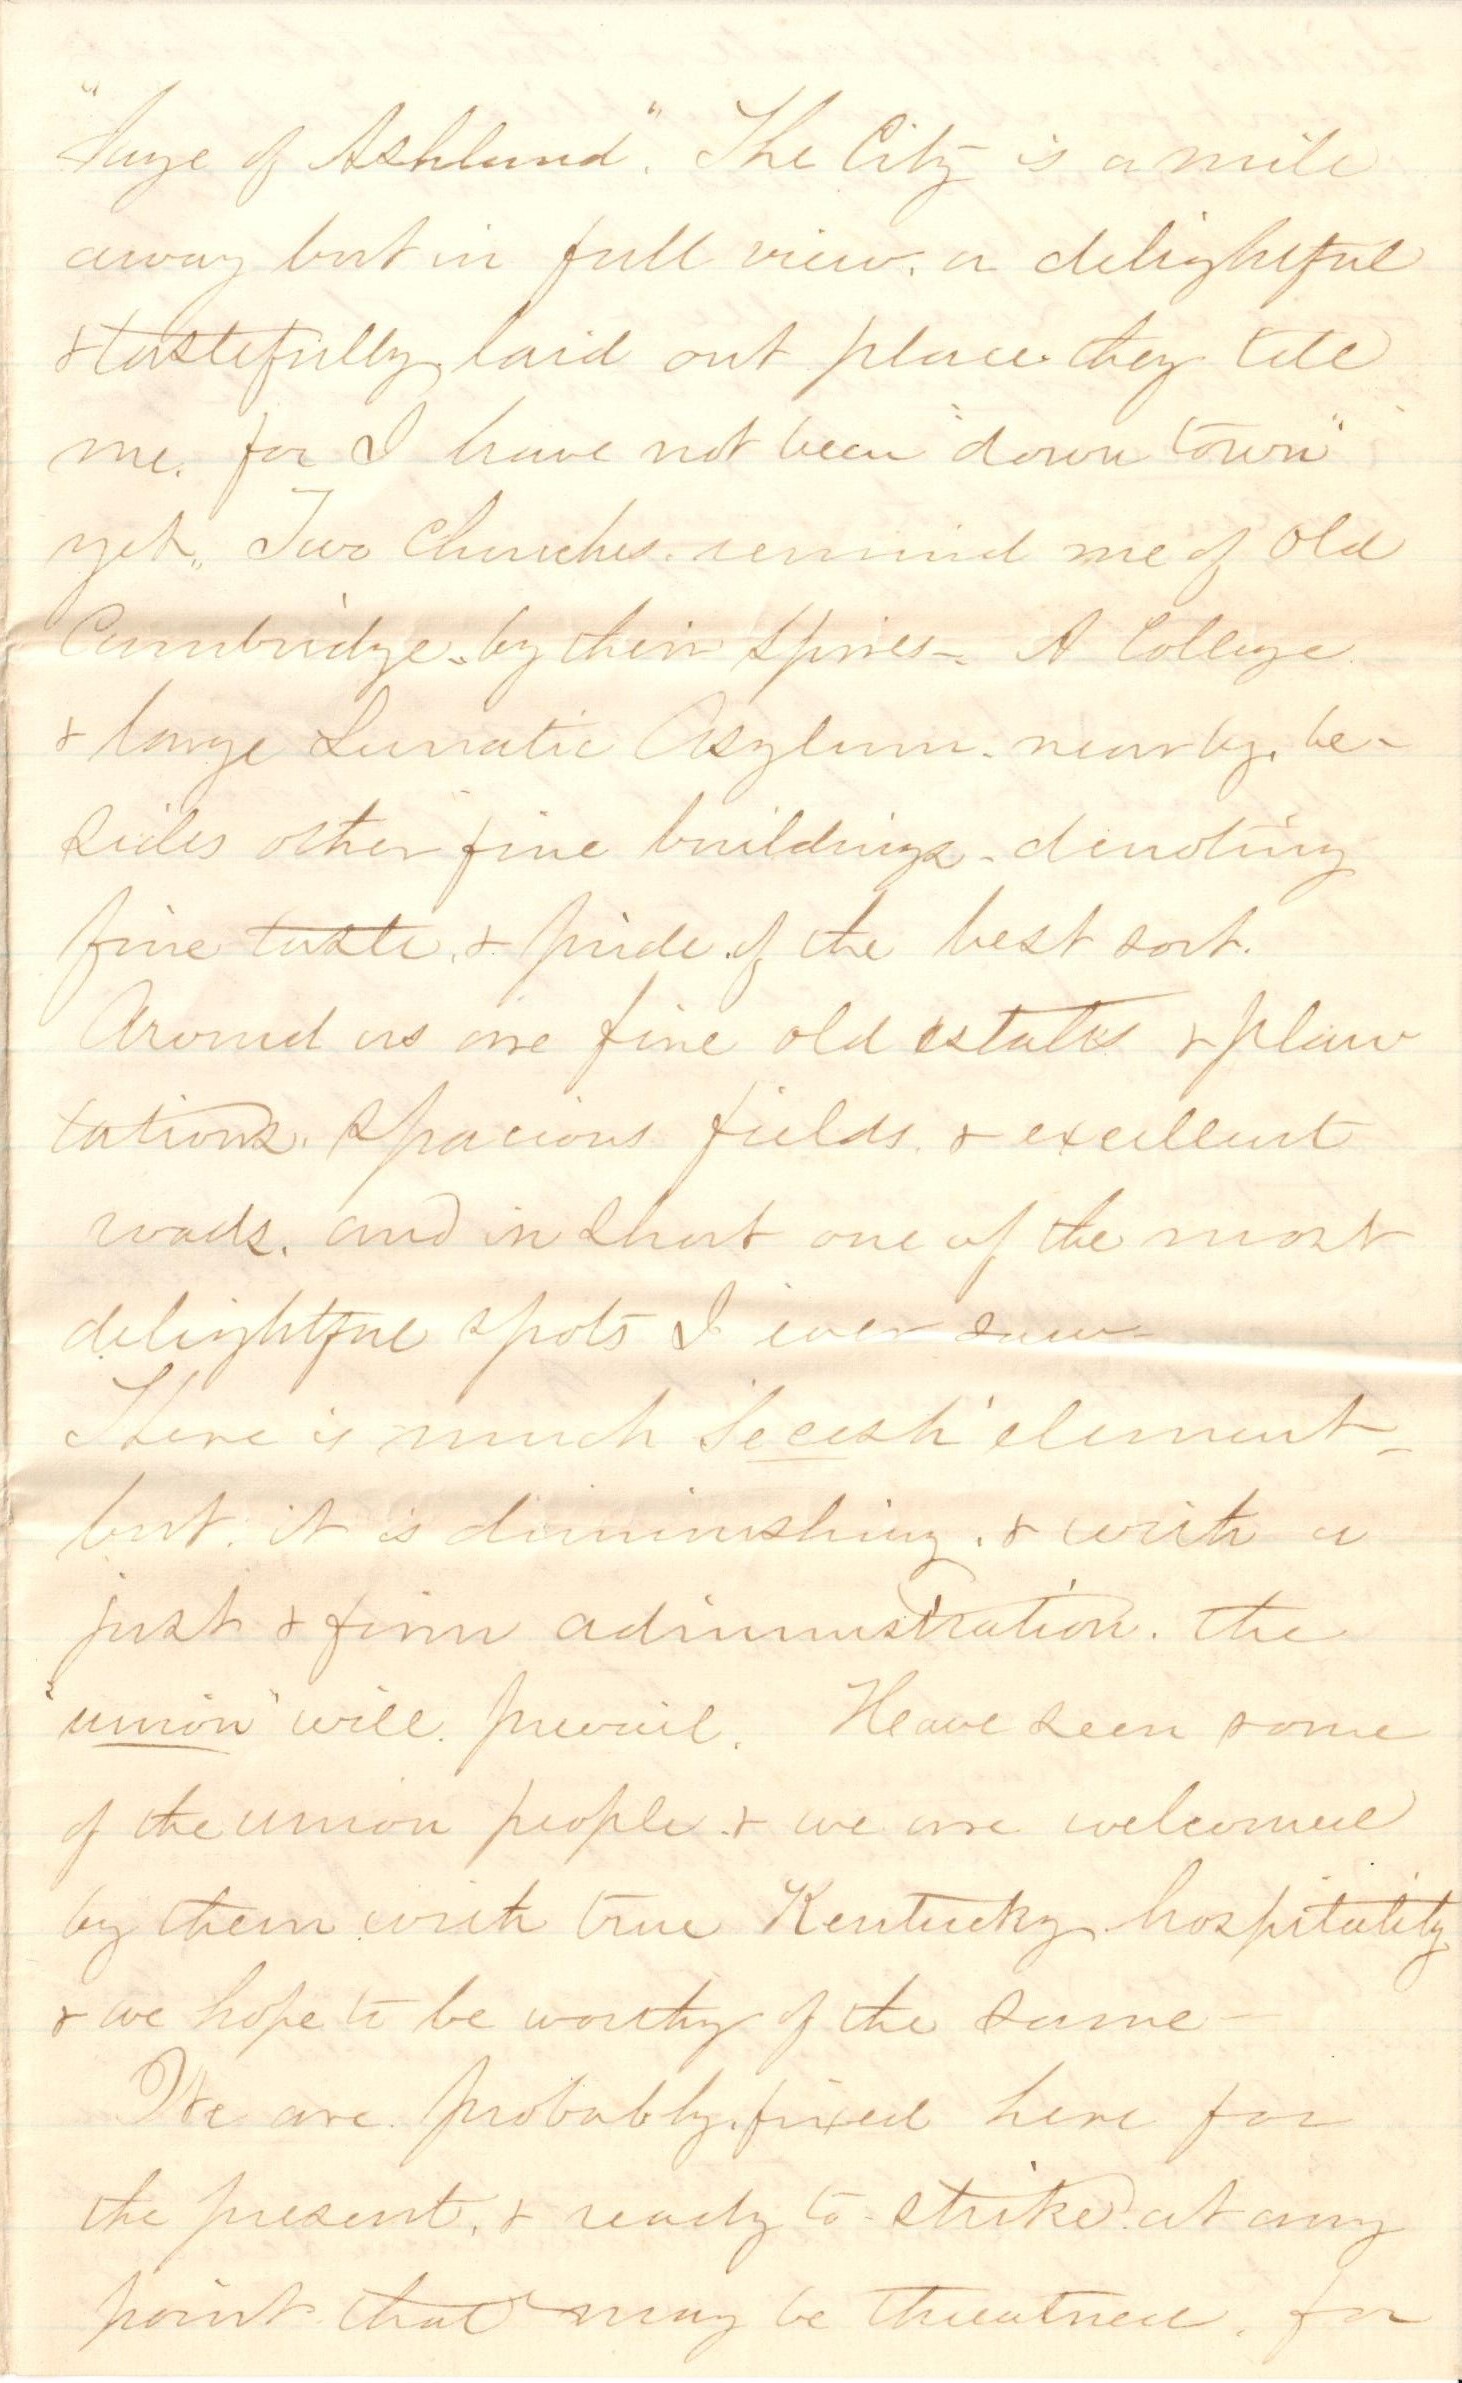 "Sage of Ashland". The City is a mile
away but in full view. a delightful
& tastefully laid out place they tell
me. for I have not been "down town"
yet, Two Churches. remind me of old
Cambridge. by their spires-. A College
& large Lunatic Asylum. near by. be-
sides other fine buildings - denoting
fine taste, & pride of the best sort.
Around us are fine old estates & plan
tations. spacious fields. & excellent
roads. and in short one of the most
delightful spots I ever saw-
There is much 'Secesh' element-
but. it is diminishing. & with a
just & firm administration. the
"union" will. prevail. Have seen some
of the union people. & we are welcomed
by them with true Kentucky hospitality
& we hope to be worthy of the same-
We are probably fixed here for
the present, & ready to strike at any
point that may be threatned. for